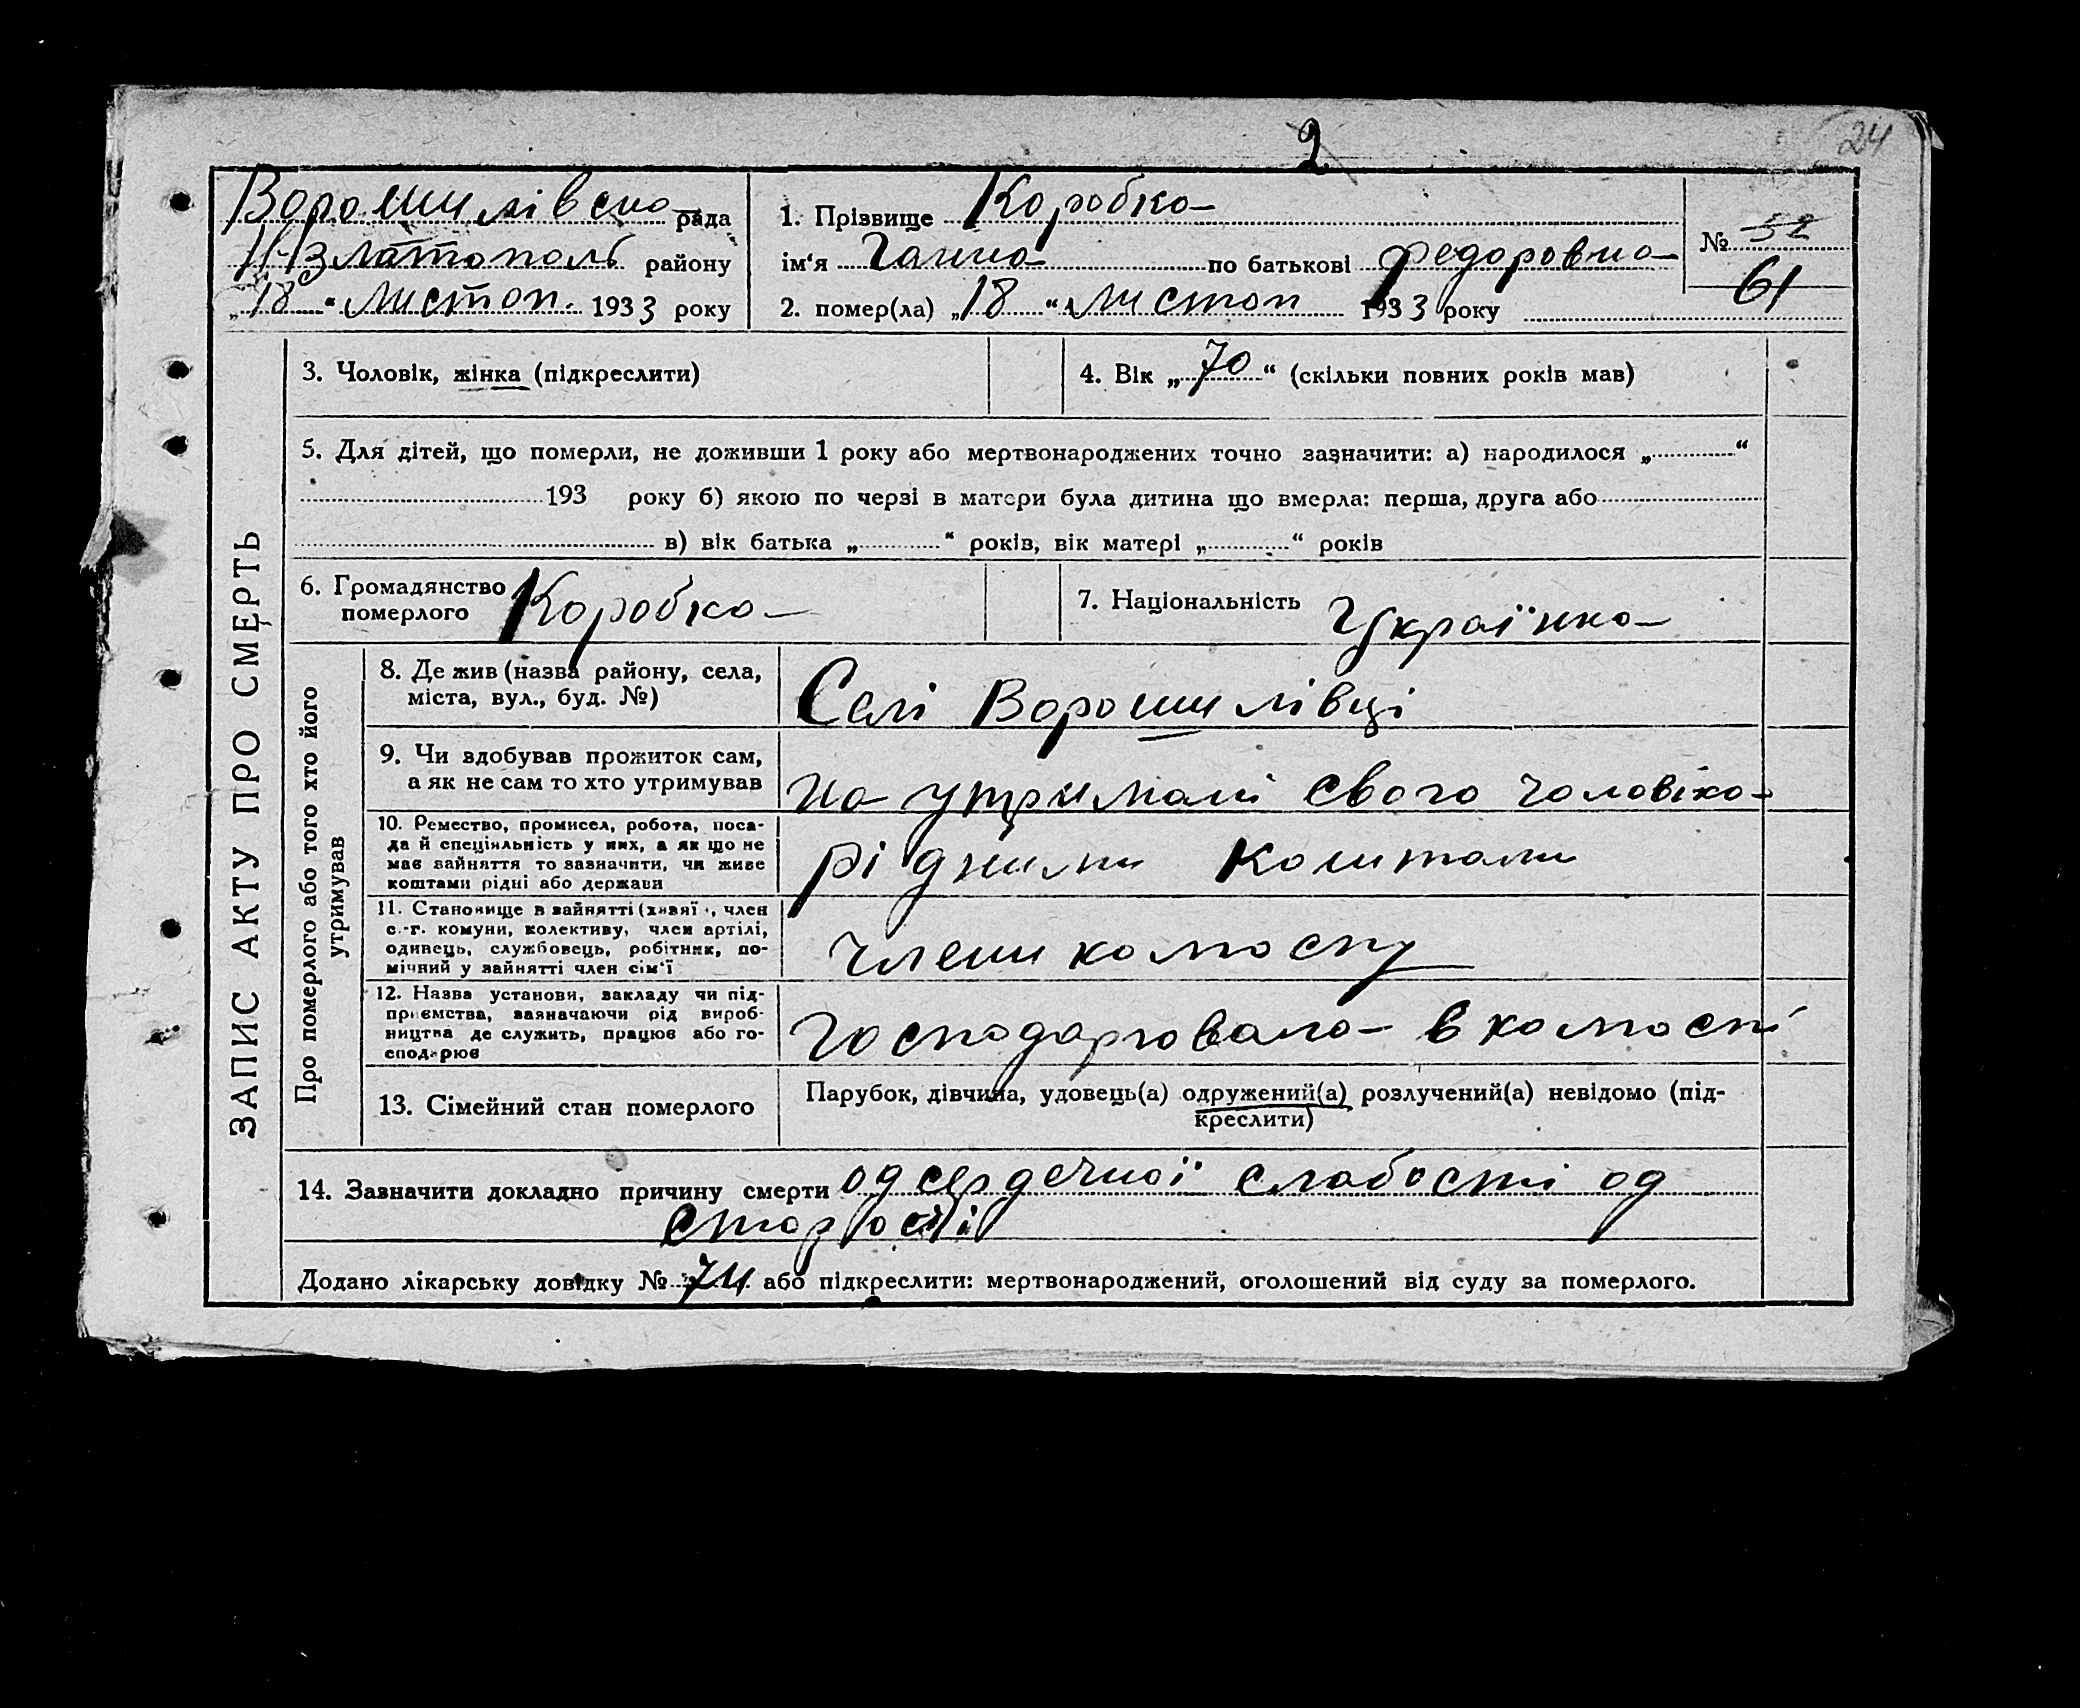 2
24
Ворошилівська рада
Н-Златополь району
„18“ листоп. 1933 року
1. Прізвище Коробка
ім‘я Ганна по батькові Федоровна
2. помер(ла) „18“ листоп 1933 року
№ 52
61
ЗАПИС АКТУ ПРО СМЕРТЬ
3. Чоловік, жінка (підкреслити)
4. Вік „70“ (скільки повних років мав)
5. Для дітей, що померли, не доживши 1 року або мертвонароджених точно зазначити: а) народилося „ “
193 року б) якою по черзі в матери була дитина що вмерла: перша, друга або
в) вік батька „ “ років, вік матері „ “ років
6. Громадянство
померлого Коробка
7. Національність Українка
Про померлого або того хто його
утримував
8. Де жив (назва району, села,
міста, вул., буд. №)
Селі Ворошилівці
9. Чи здобував прожиток сам,
а як не сам то хто утримував
на утримані свого чоловіка
10. Ремество, промисел, робота, поса-
да й спеціяльність у них, а як що не
має зайняття то зазначити, чи живе
коштами рідні або держави
рідними коштами
11. Становище в зайнятті (хазяї, член
с.-г. комуни, колективу, член артілі,
одинець, службовець, робітник, по-
мічний у зайнятті член сім‘ї
члени колгоспу
12. Назва установи, закладу чи під-
приємства, зазначаючи рід вироб-
ництва де служить, працює або го-
сподарює
Господарювала в колгоспі
13. Сімейний стан померлого
Парубок, дівчина, удовець(а) одружений(а) розлучений(а) невідомо (під-
креслити)
14. Зазначити докладно причину смерти од сердечної слабості од
старості
Додано лікарську довідку № 74 або підкреслити: мертвонароджений, оголошений від суду за померлого.